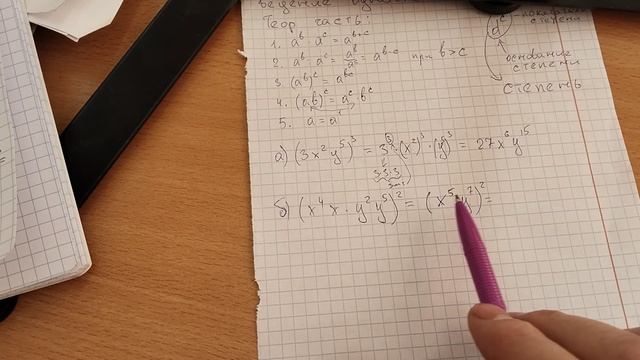 Теор часть:
1. a^b · a^c = a^(b+c)
2. a^b : a^c = a^b/a^c = a^(b-c) при b > c
3. (a^b)^c = a^(bc)
4. (ab)^c = a^c · b^c
5. a = a^1
степени
основание
степени
степень
а) (3x²y⁵)³ = 3³ · (x²)³ · (y⁵)³ = 27x⁶y¹⁵
3·3·3
б) (x⁴x · y²y⁵)² = (x⁵ y⁷)² =